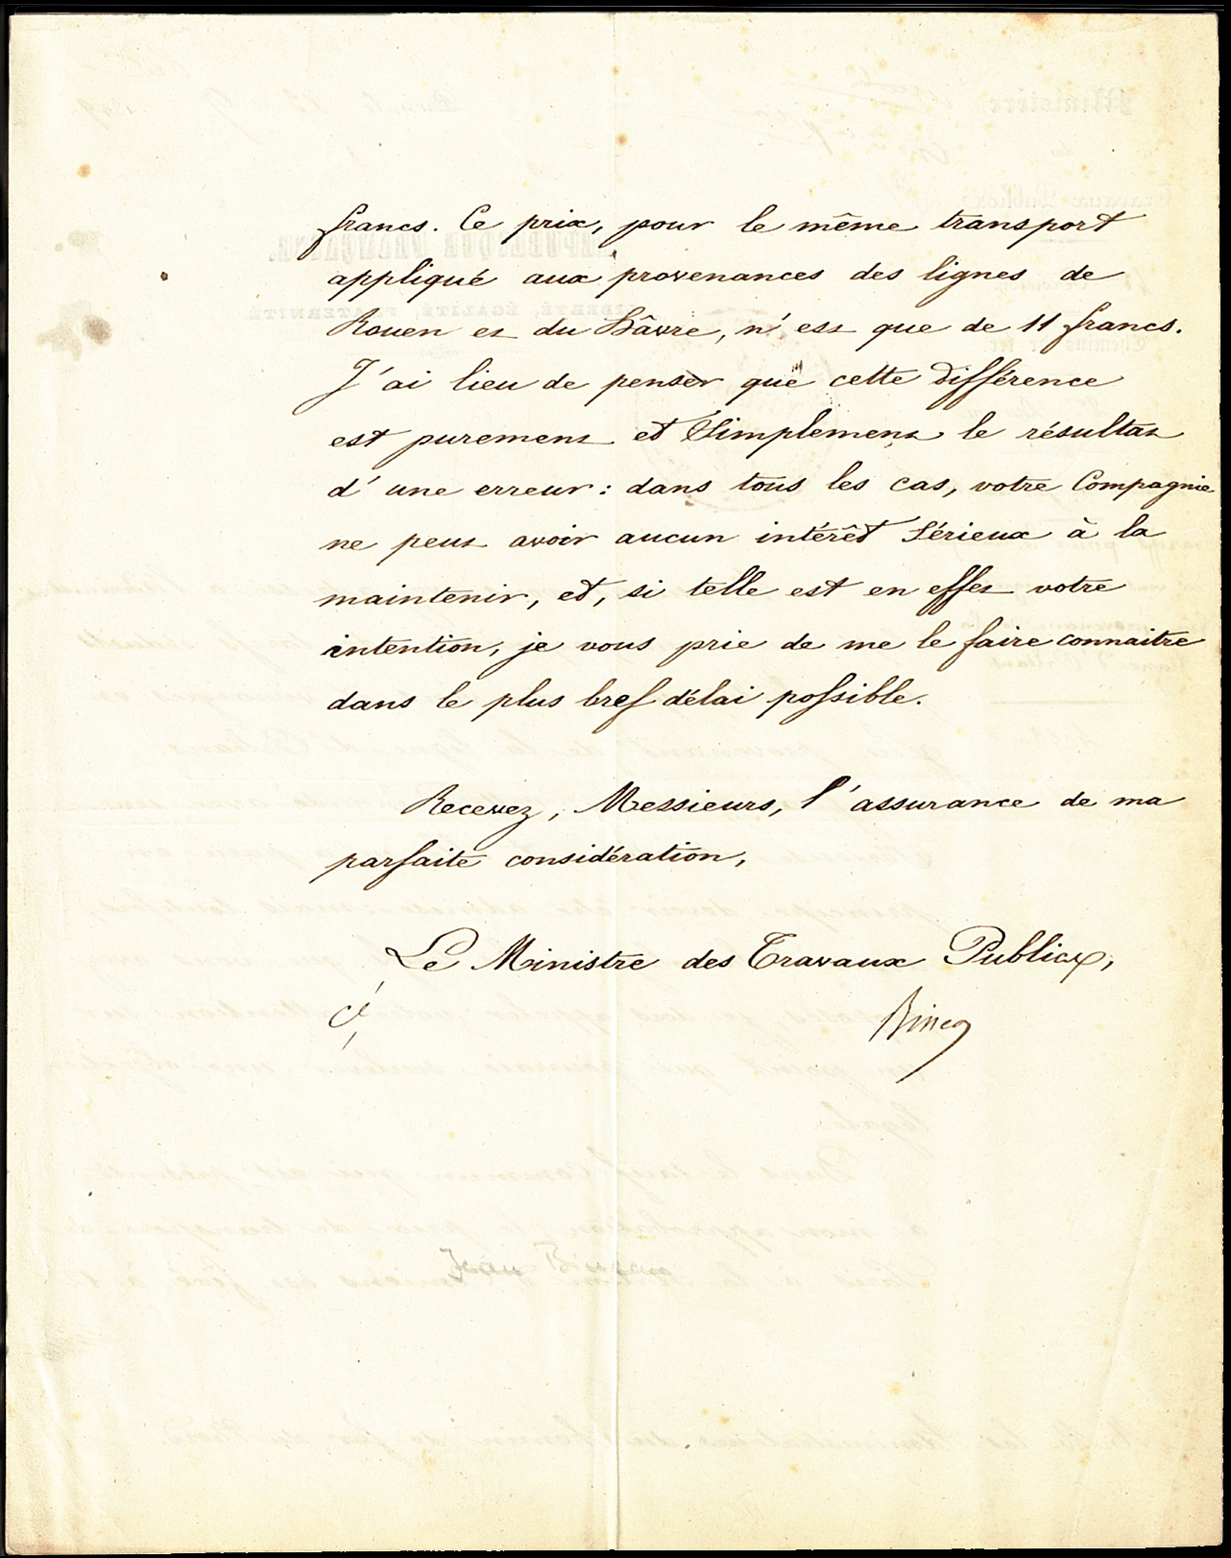 francs. Ce prix, pour le même transport
appliqué aux provenances des lignes de
Rouen et du Hâvre, n'est que de 11 francs.
J'ai lieu de penser que cette différence
est purement et simplement le résultat
d'une erreur : dans tous les cas, votre Compagnie
ne peut avoir aucun intérêt sérieux à la
maintenir, et, si telle est en effet votre
intention, je vous prie de me le faire connaitre
dans le plus bref délai possible.
Recevez, Messieurs, l'assurance de ma
parfaite considération,
Le Ministre des Travaux Publics,
Bineau
Jean Bineau